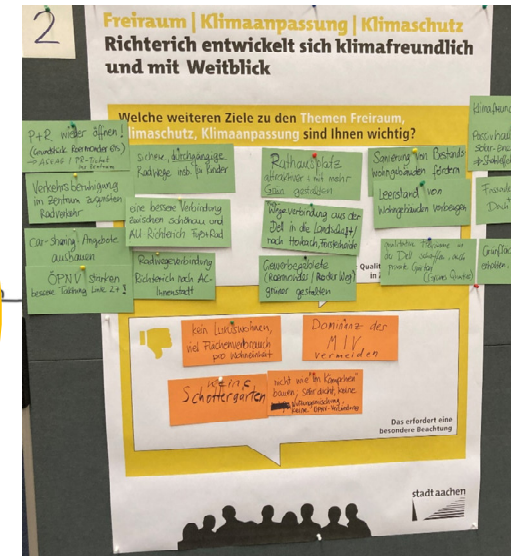 2
Freiraum | Klimaanpassung | Klimaschutz
Richterich entwickelt sich klimafreundlich
und mit Weitblick
Welche weiteren Ziele zu den Themen Freiraum,
Klimaschutz, Klimaanpassung sind Ihnen wichtig?
P+R wieder öffnen!
(Grundschule Roermonder Str.)
→ ASEAG / PR-Ticket
Verkehrsberuhigung
im Zentrum zugunsten
Radverkehr
Car-sharing Angebote
ausbauen
ÖPNV stärken
bessere Taktung Linie 24!
sichere, durchgängige
Radwege insb. für Kinder
eine bessere Verbindung
zwischen Schönau und
Alt Richterich Fuß+Rad
Radwegeverbindung
Richterich nach AC-
Innenstadt
Rathausplatz
attraktiver & mit mehr
Grün gestalten
Wegeverbindung aus der
Dell in die Landschaft/
nach Horbach, Forsterheide
Gewerbegebiete
(Roermonder/Roder Weg)
grüner gestalten
Sanierung von Bestands
wohngebäuden fördern
Leerstand von
Wohngebäuden vorbeugen
Dell schaffen, auch
private Gärten
(Grünes Quartier)
Klimafreund
Passivhaus
Solar-En
Dach
Grünfläc
erhalten
Quali
kein Luxuswohnen,
viel Flächenverbrauch
pro Wohneinheit
Dominanz des
MIV
vermeiden
keine
Schottergärten
nicht wie "Im Kämpchen"
bauen, sehr dicht, keine
Nutzungsmischung,
keine ÖPNV-Anbindung
Das erfordert eine
besondere Beachtung
stadt aachen